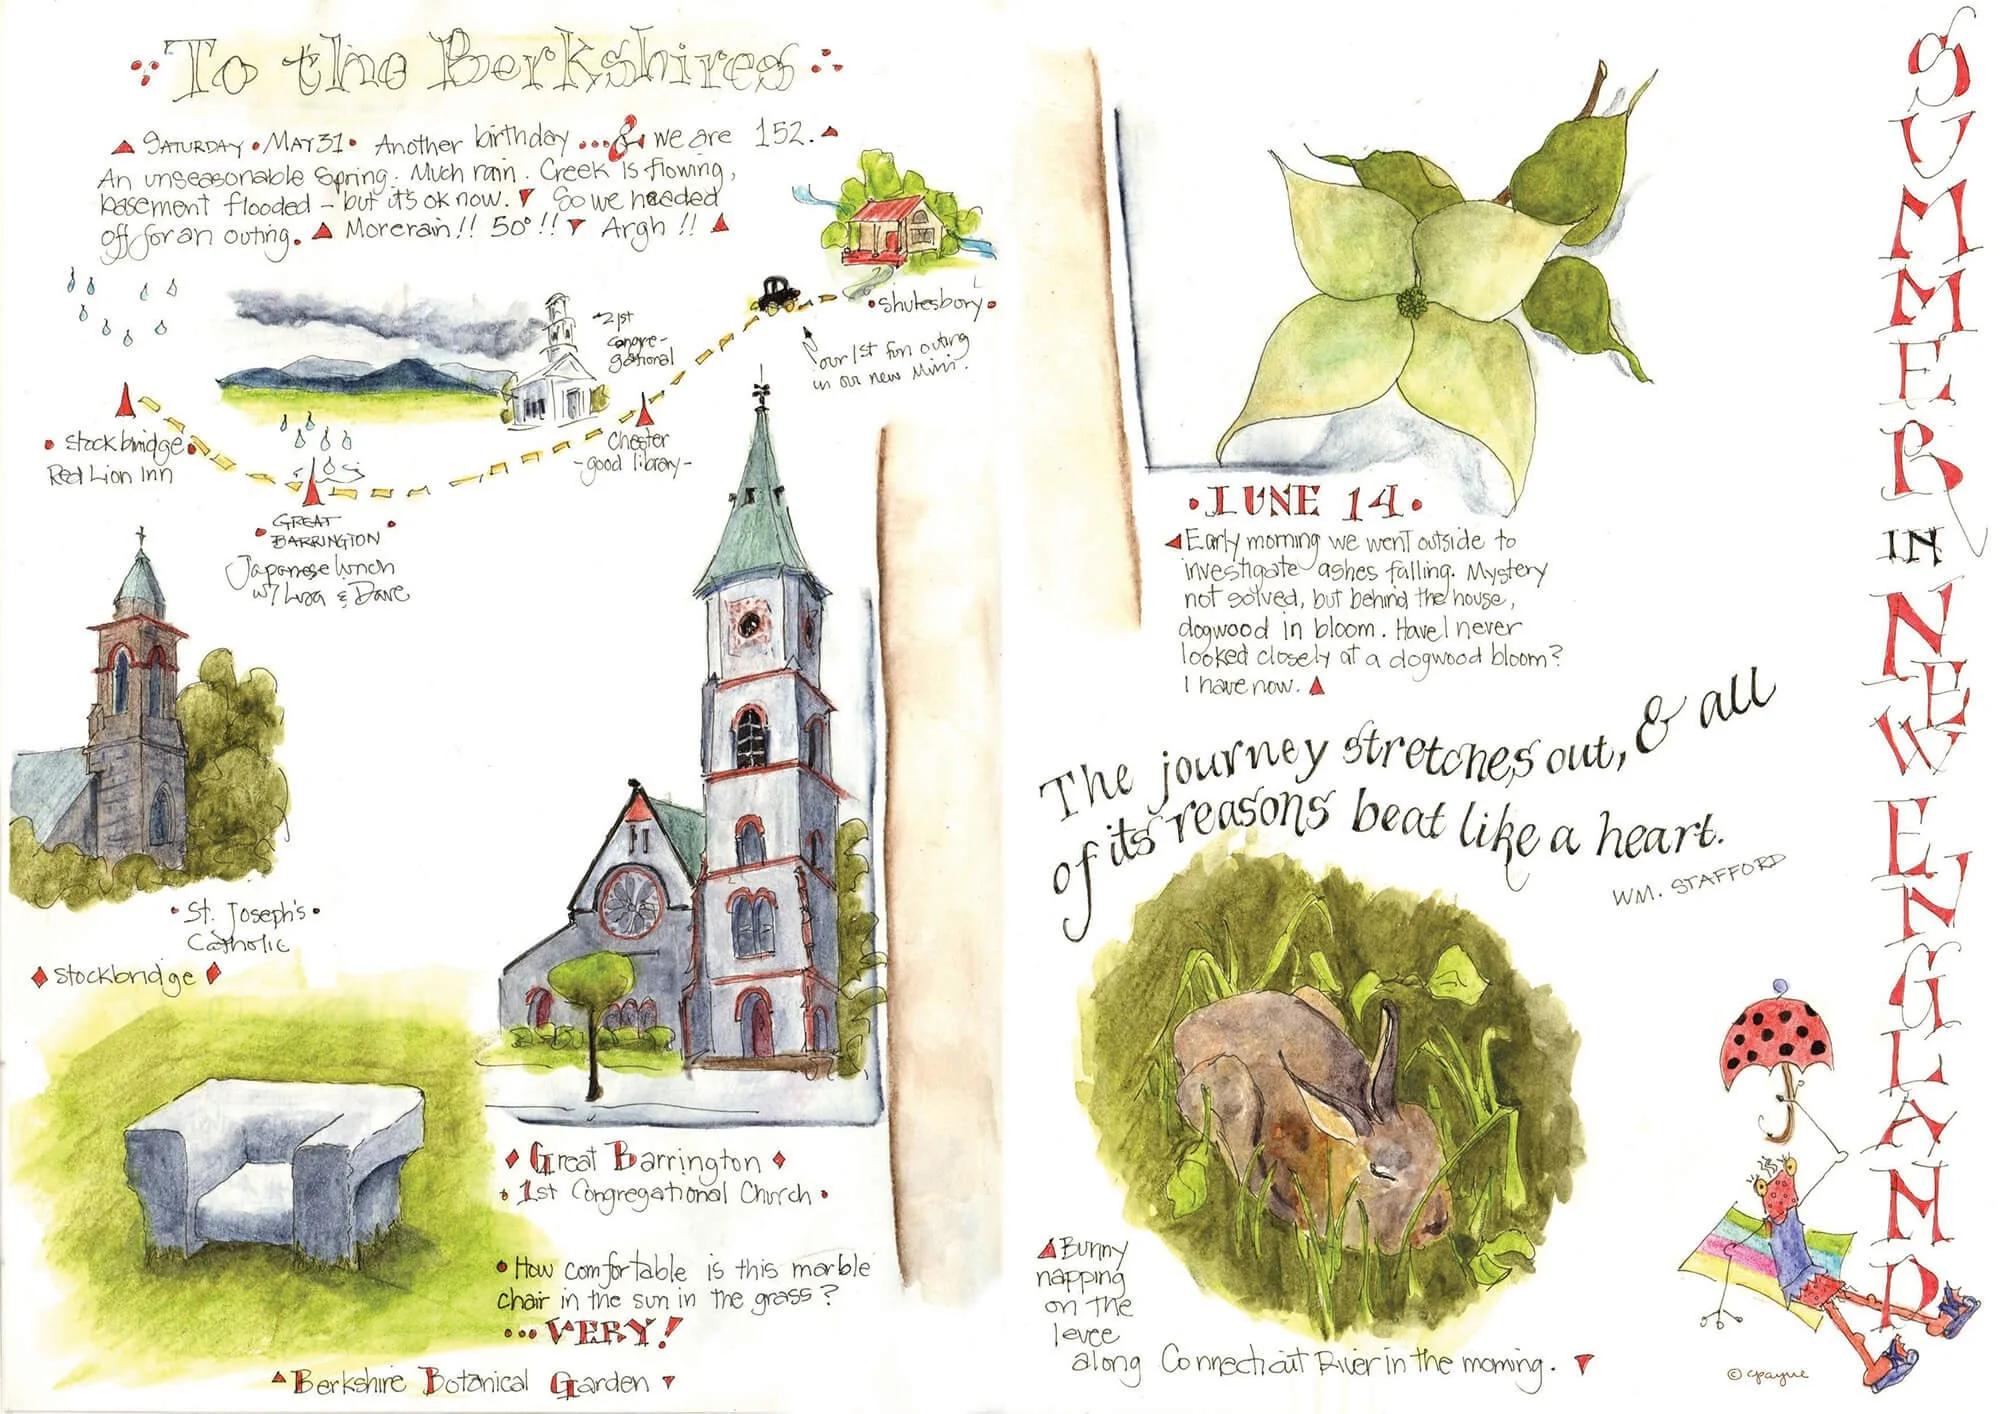 To the Berkshires
SATURDAY • MAY 31 • Another birthday ... & we are 152.
An unseasonable Spring. Much rain. Creek is flowing,
basement flooded - but it's ok now. So we needed
off for an outing. More rain!! 50° !! Argh !!
• Shutesbury •
our 1st fun outing
in our new Mini.
21st
Congre-
gational
Chester
- good library -
• Stockbridge •
Red Lion Inn
• GREAT •
BARRINGTON
Japanese lunch
w/ Lisa & Dave
• St. Joseph's •
Catholic
Stockbridge
Great Barrington
• 1st Congregational Church •
• How comfortable is this marble
chair in the sun in the grass?
... VERY!
Berkshire Botanical Garden
• JUNE 14 •
Early morning we went outside to
investigate ashes falling. Mystery
not solved, but behind the house,
dogwood in bloom. Have I never
looked closely at a dogwood bloom?
I have now.
The journey stretches out, & all
of its reasons beat like a heart.
WM. STAFFORD
Bunny
napping
on the
levee
along Connecticut River in the morning.
SUMMER IN NEW ENGLAND
© cpayne